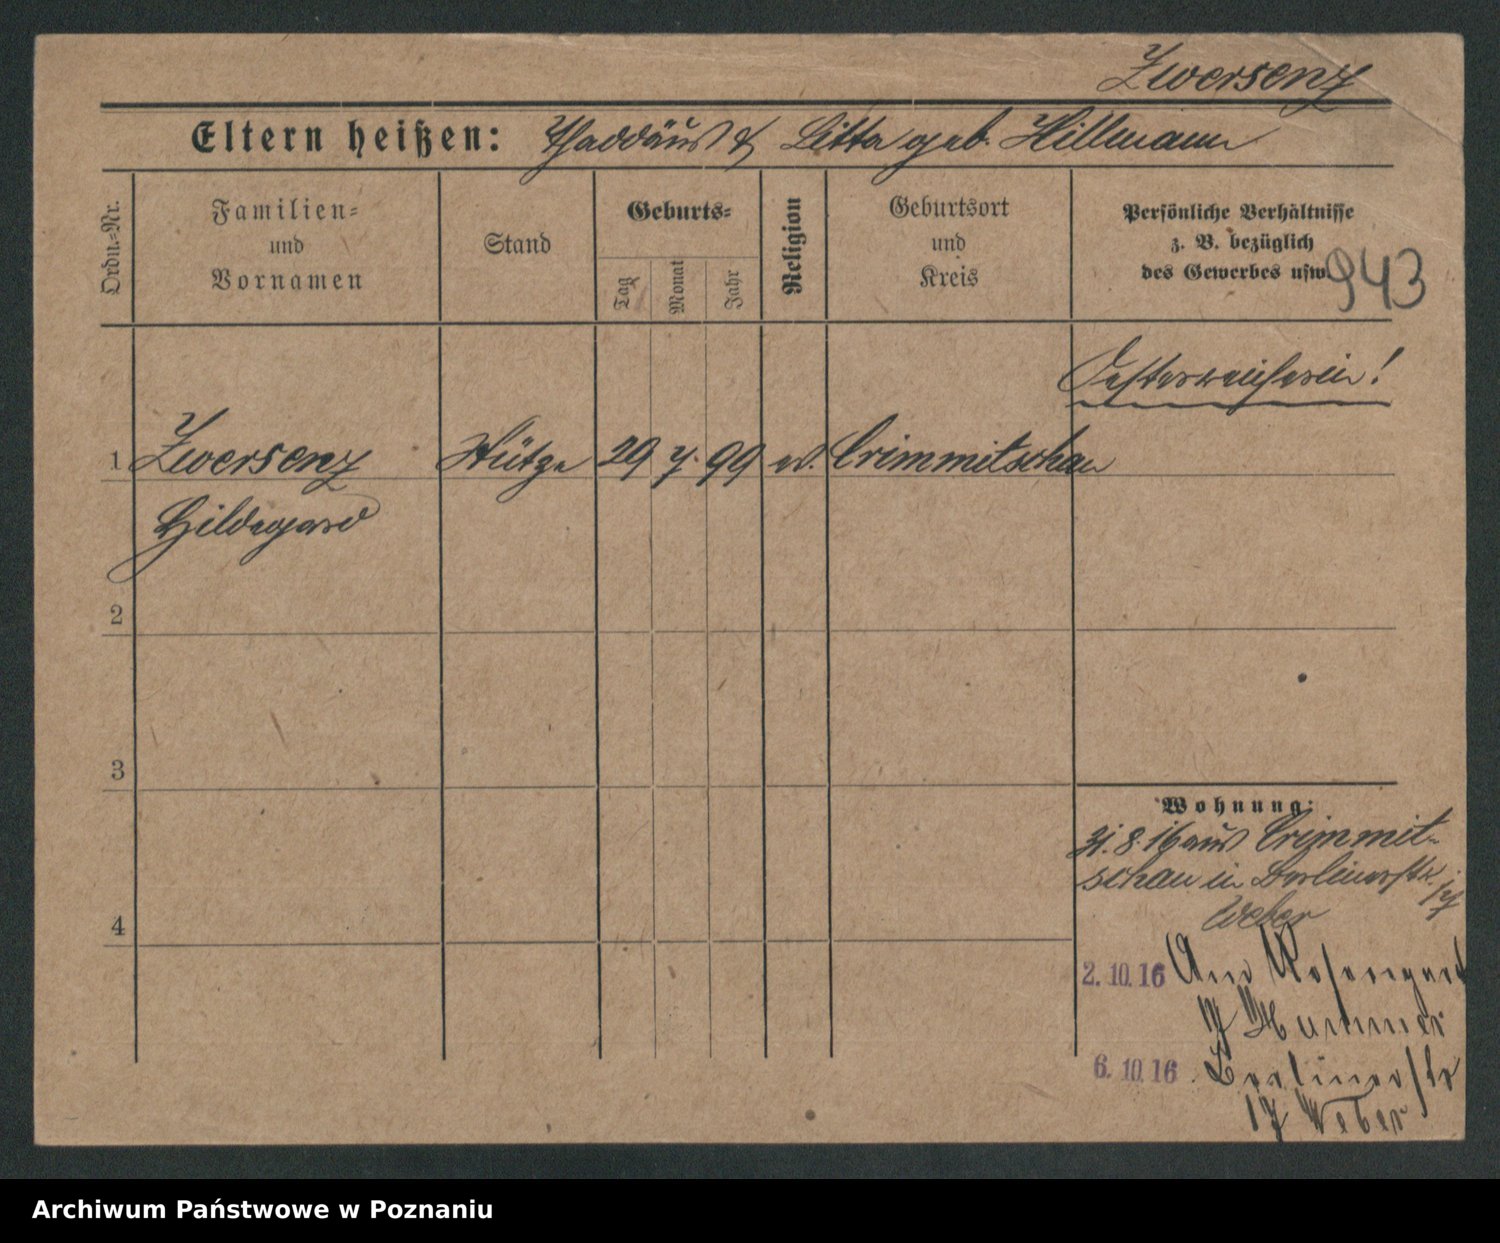 Zwersenz
Eltern heißen: Thaddäus & Litta geb. Hillmann
Ordn.-Nr.
Familien-
und
Vornamen
Stand
Geburts-
Tag
Monat
Jahr
Religion
Geburtsort
und
Kreis
Persönliche Verhältnisse
z. B. bezüglich
des Gewerbes usw.
943
Oesterreicherin!
1 Zwersenz Stütze 29 7. 99 ev. Crimmitschau
Hildegard
2
3
4
Wohnung:
31. 8. 16 aus Crimmit-
schau in Berlinerstr. 17
Weber
2. 10. 16 Am Rosengart
17 Hummer
6. 10. 16 Berlinerstr
17 Weber
Archiwum Państwowe w Poznaniu